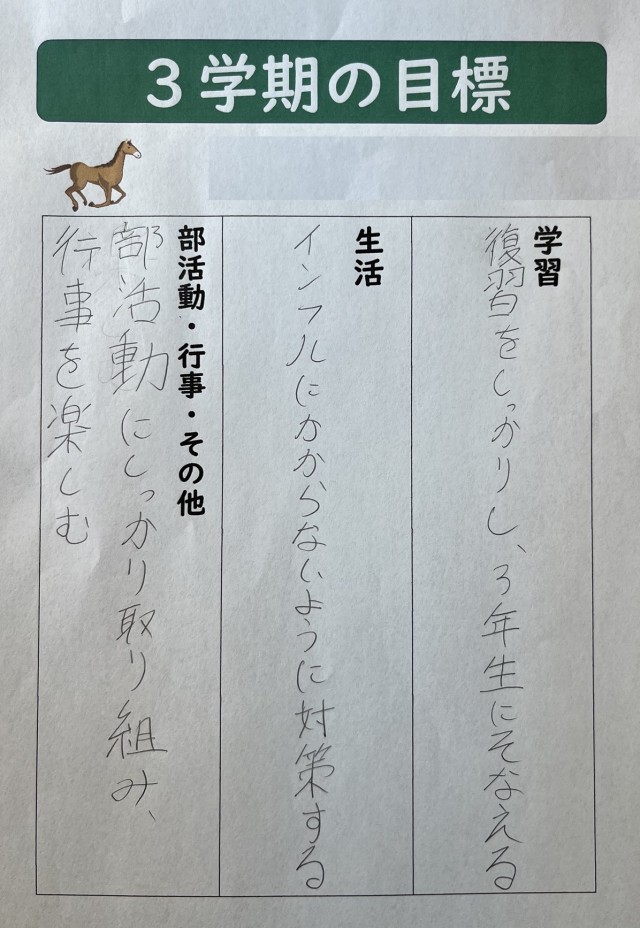 3学期の目標
学習
復習をしっかりし、3年生にそなえる
生活
インフルにかからないように対策する
部活動・行事・その他
部活動にしっかり取り組み、
行事を楽しむ